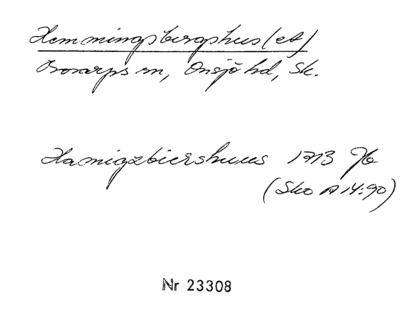 Hemmingsberghus (et)
Bosarps sn, Onsjö hd, Sk.
Hamigzbiershuus 1713 Jb
(Sko A 14:90)
Nr 23308